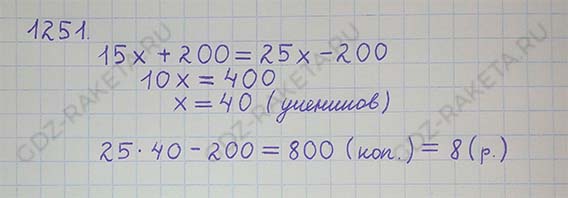 1251.
15x + 200 = 25x - 200
10x = 400
x = 40 (учеников)
25 · 40 - 200 = 800 (коп.) = 8 (р.)
GDZ-RAKETA.RU
GDZ-RAKETA.RU
GDZ-RAKETA.RU